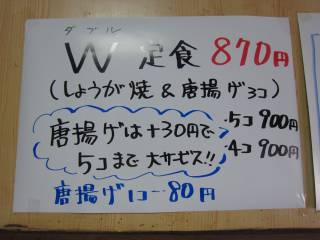 ダブル
W定食 870円
(しょうが焼&唐揚げ3コ)
唐揚げは+30円で
5コまで大サービス!!
・5コ 900円
・4コ 900円
唐揚げ1コ…80円